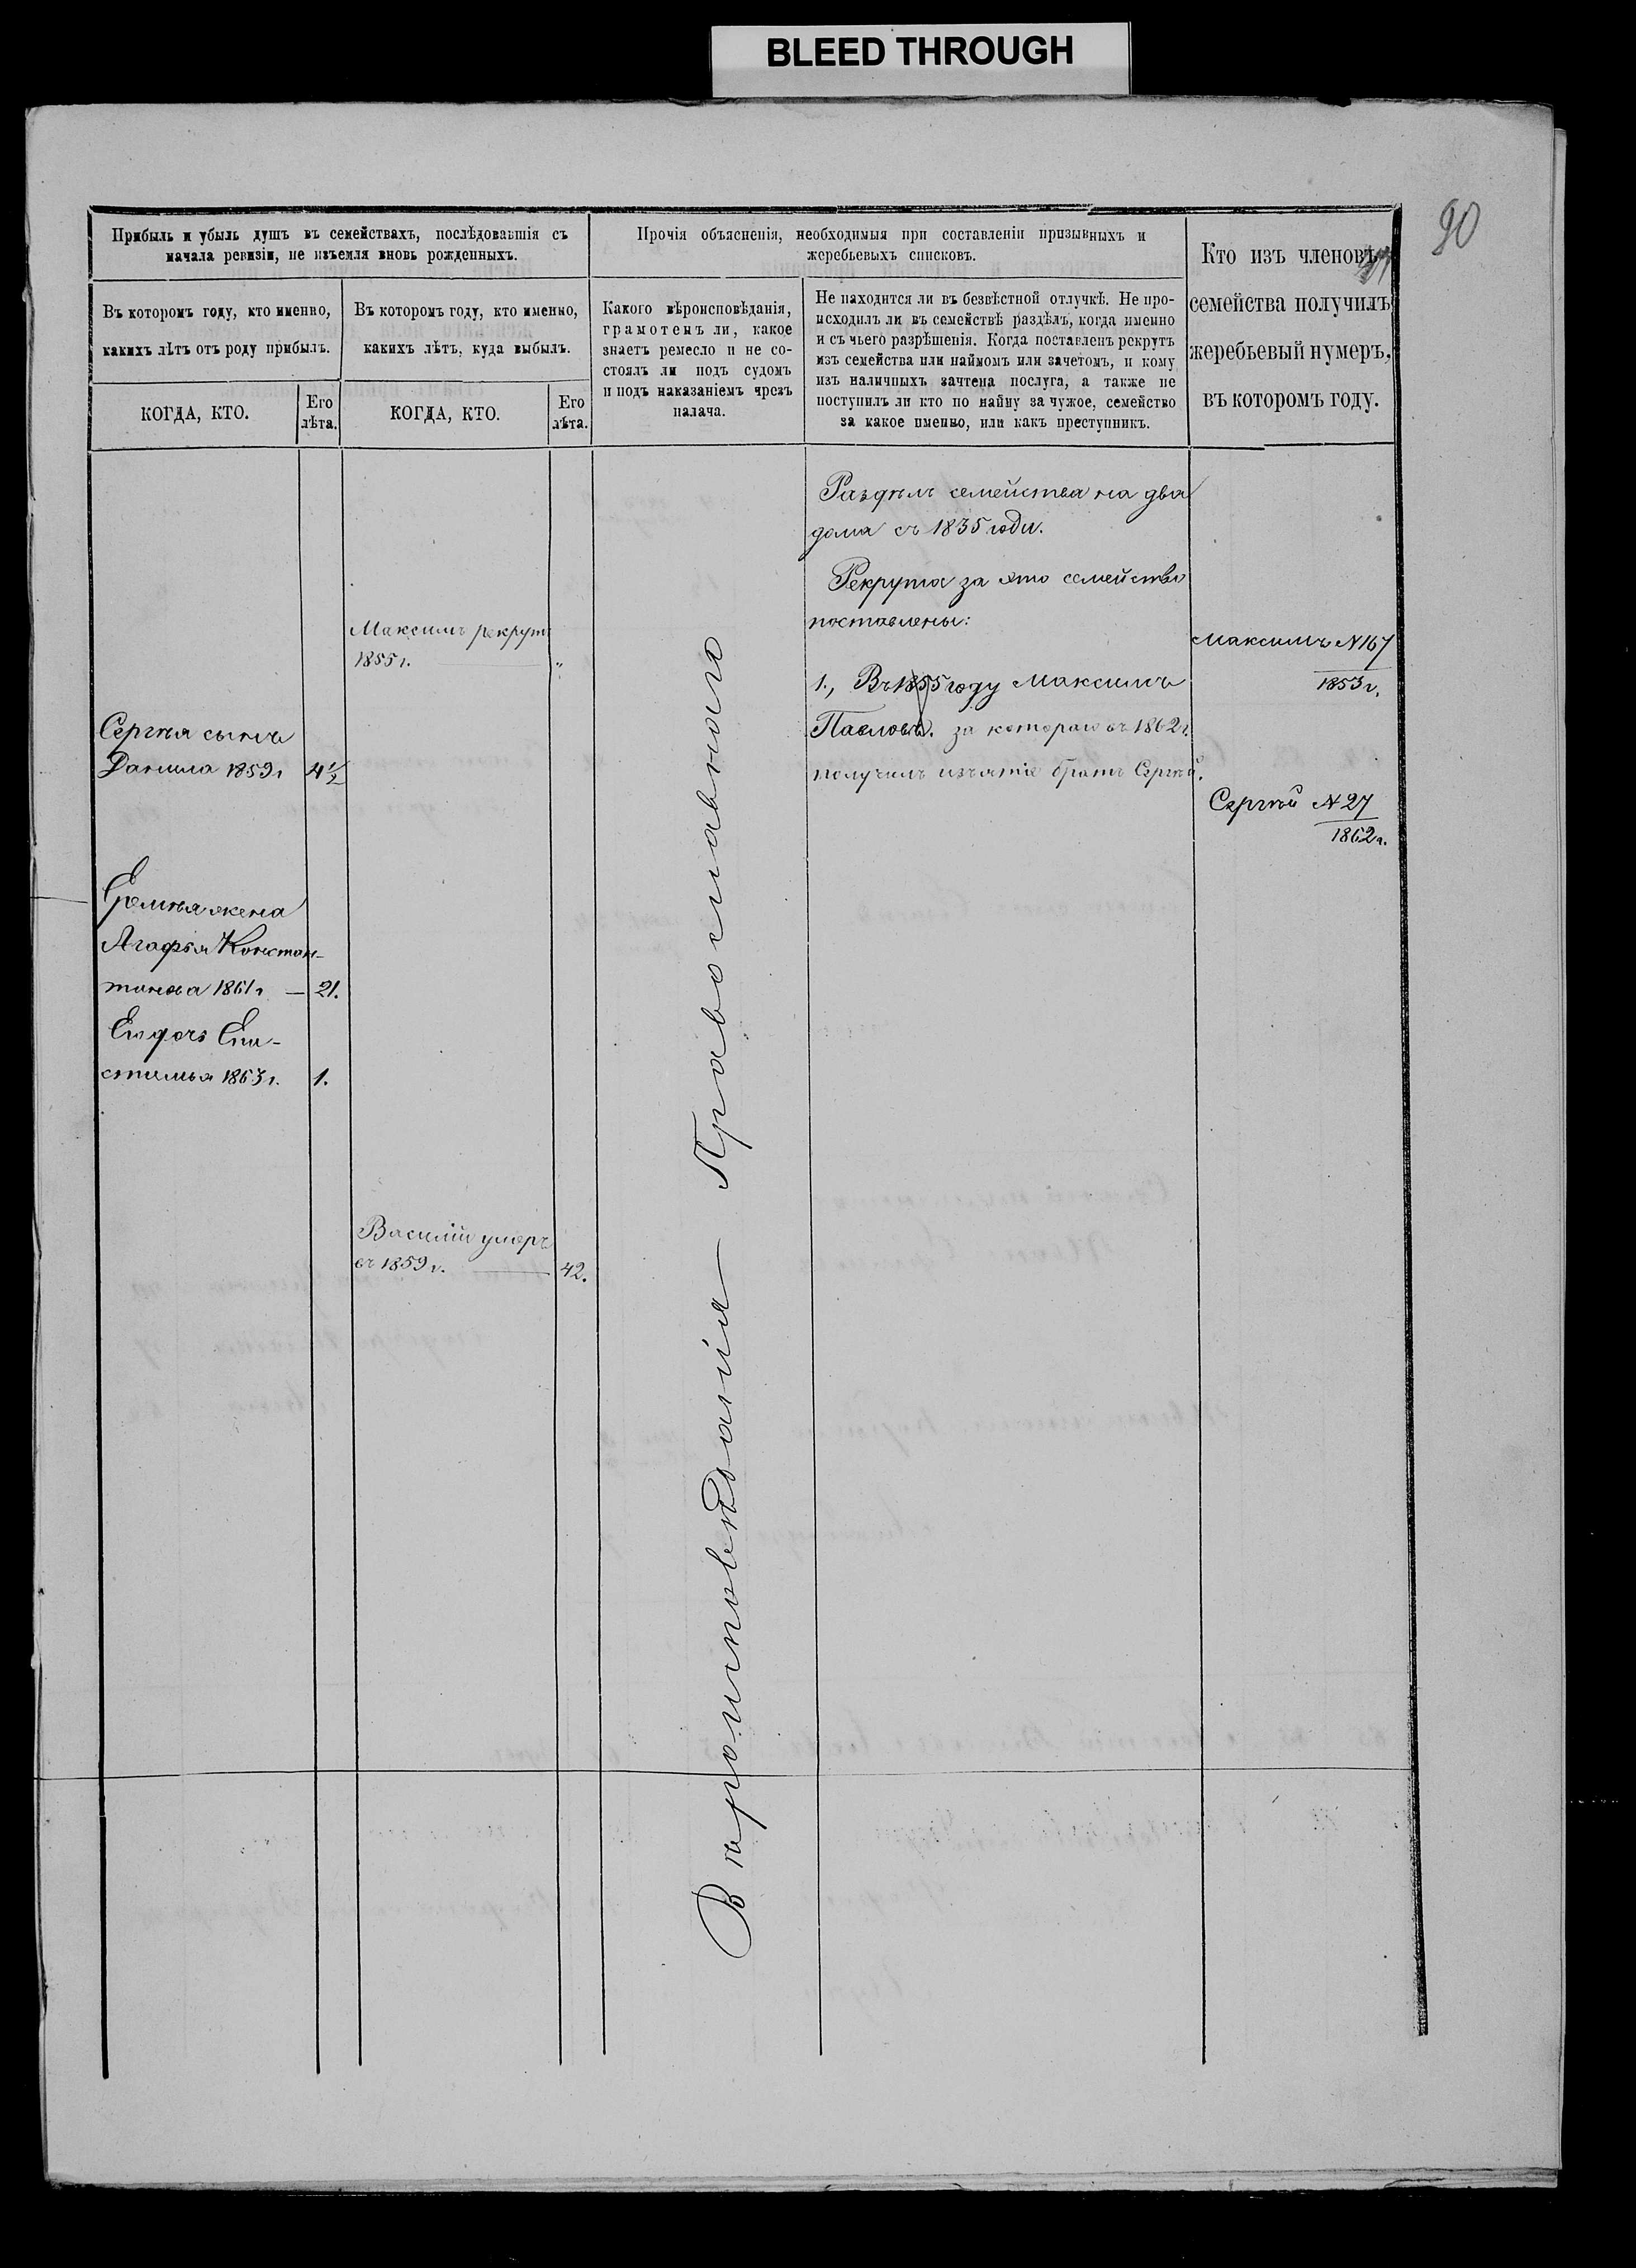 BLEED THROUGH
90
Прибыль и убыль душъ въ семействахъ, послѣдовавшія съ
начала ревизіи, не изъемля вновь рожденныхъ.
Въ которомъ году, кто именно,
какихъ лѣтъ отъ роду прибылъ.
КОГДА, КТО.
Его
лѣта.
Въ которомъ году, кто именно,
какихъ лѣтъ, куда выбылъ.
КОГДА, КТО.
Его
лѣта.
Прочія объясненія, необходимыя при составленіи призывныхъ и
жеребьевыхъ списковъ.
Какого вѣроисповѣданія,
грамотенъ ли, какое
знаетъ ремесло и не со-
стоялъ ли подъ судомъ
и подъ наказаніемъ чрезъ
палача.
Не находится ли въ безвѣстной отлучкѣ. Не про-
исходилъ ли въ семействѣ раздѣлъ, когда именно
и съ чьего разрѣшенія. Когда поставленъ рекрутъ
изъ семейства или наймомъ или зачетомъ, и кому
изъ наличныхъ зачтена послуга, а также не
поступилъ ли кто по найму за чужое, семейство
за какое именно, или какъ преступникъ.
Кто изъ членовъ
семейства получилъ
жеребьевый нумеръ,
въ которомъ году.
Сергѣя сынъ
Данила 1859г 4½
Еремѣя жена
Агафья Констан-
тинова 1861г — 21.
Ею дочь Епи-
стимья 1863г. 1.
Максимъ рекрут
1855г. — "
Василій умеръ
въ 1859г. — 42.
Вѣроисповѣданія — Православнаго
Раздѣлъ семейства на два
дома съ 1835 годи.
Рекрута за это семейство
поставлены:
1., Въ 1855 году Максимъ
Павловъ. за котораго въ 1862г.
получилъ изъятіе братъ Сергѣй.
Максимъ N 167
1853г.
Сергѣй N 27
1862г.